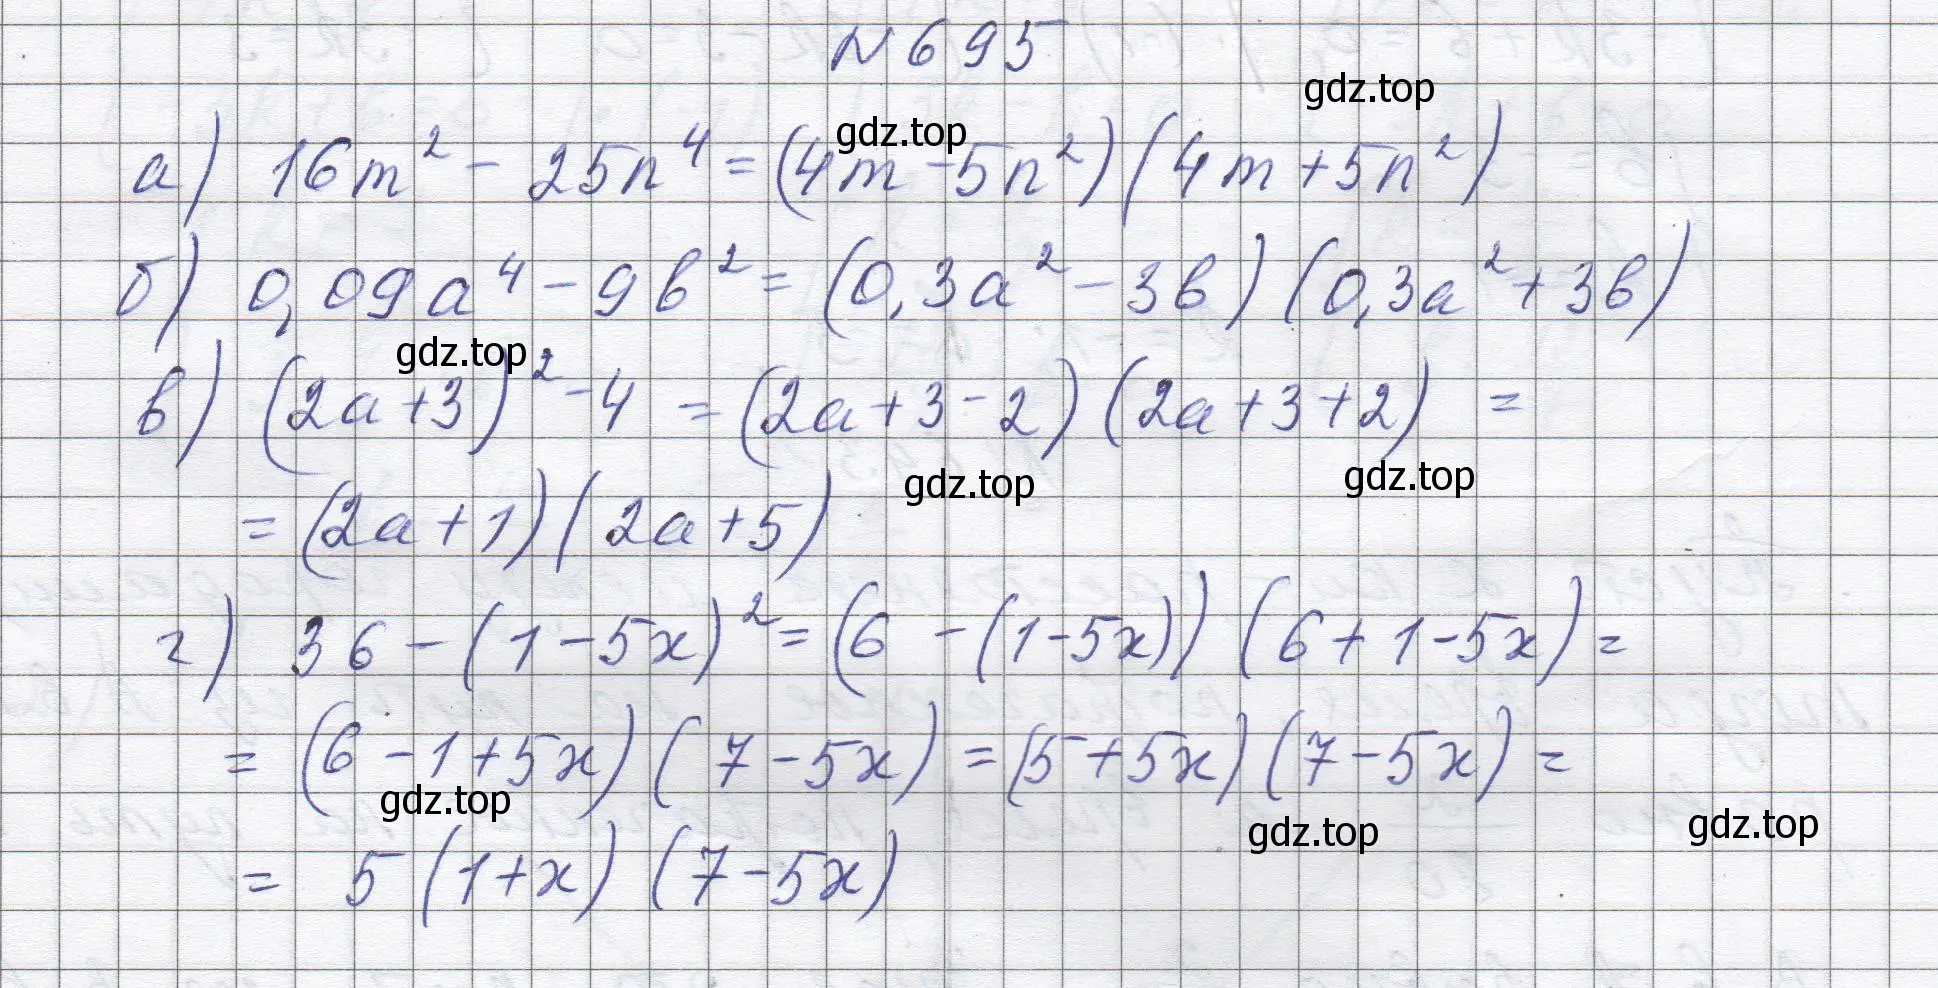 N 695
gdz.top
gdz.top
а) 16m² - 25n⁴ = (4m - 5n²) (4m + 5n²)
б) 0,09a⁴ - 9b² = (0,3a² - 3b) (0,3a² + 3b)
gdz.top
в) (2a + 3)² - 4 = (2a + 3 - 2) (2a + 3 + 2) =
gdz.top
gdz.top
= (2a + 1) (2a + 5)
г) 36 - (1 - 5x)² = (6 - (1 - 5x)) (6 + 1 - 5x) =
= (6 - 1 + 5x) (7 - 5x) = (5 + 5x) (7 - 5x) =
gdz.top
gdz.top
gdz.top
= 5 (1 + x) (7 - 5x)